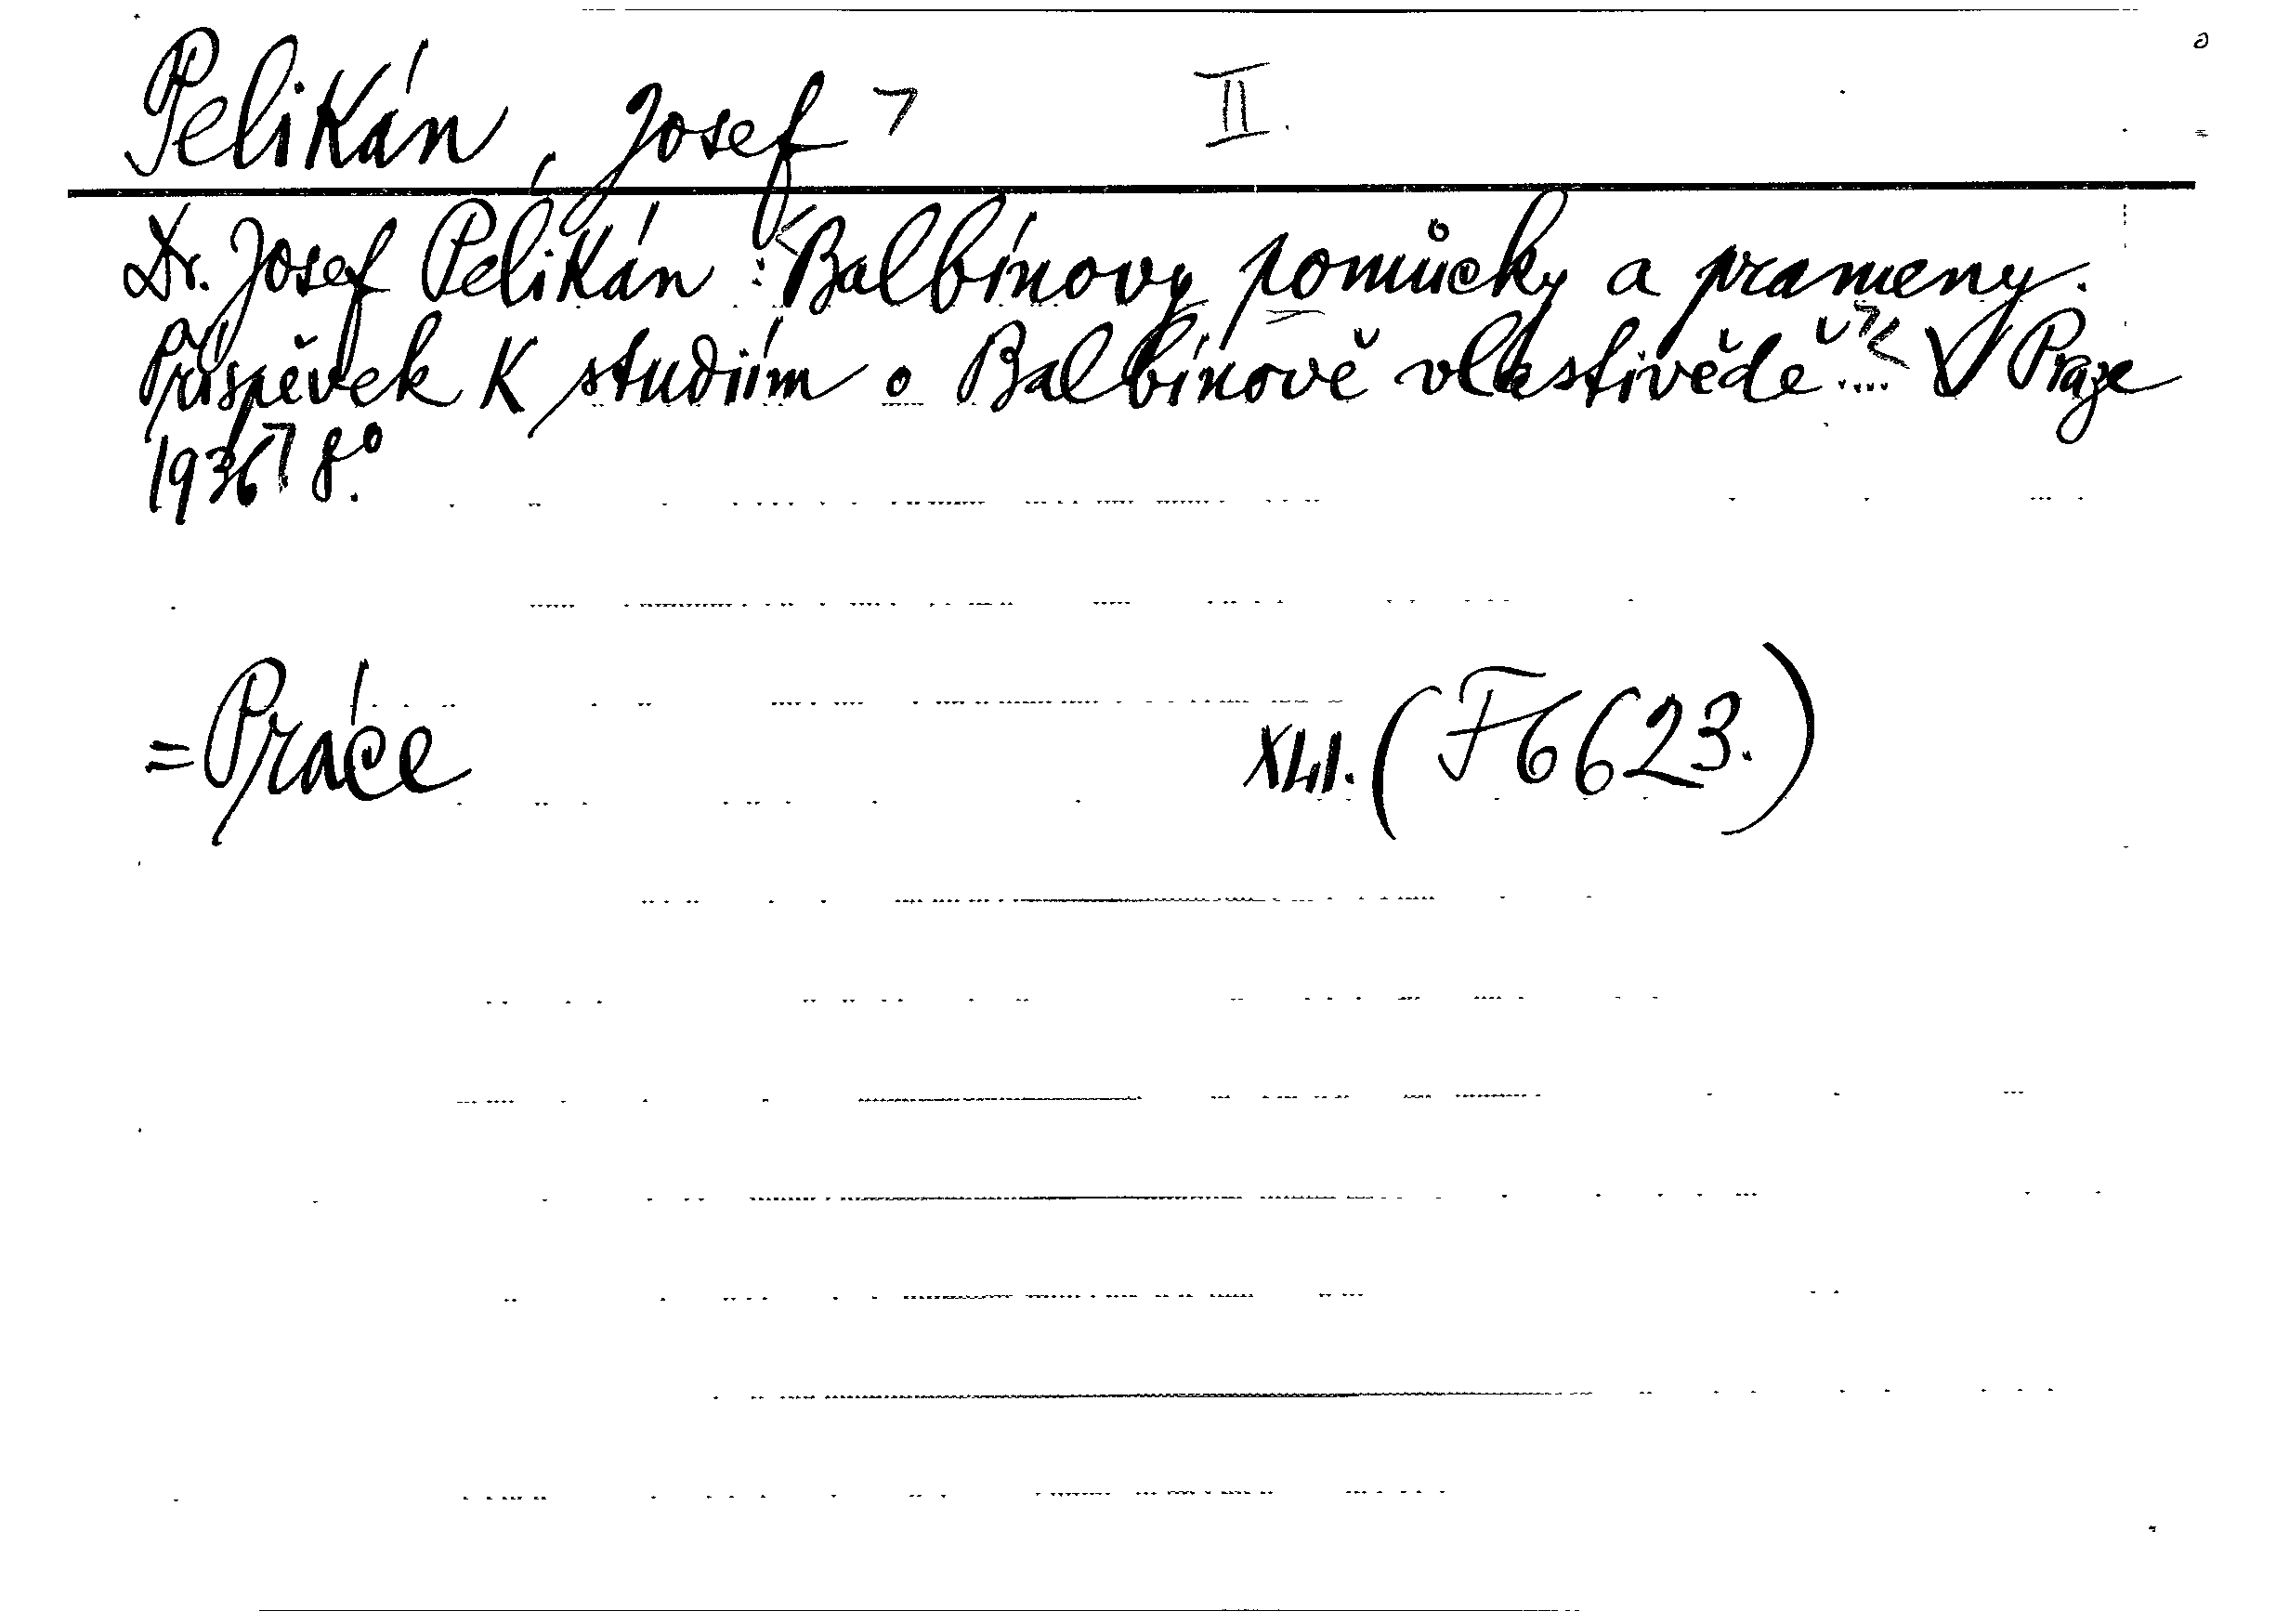 Pelikán, Josef ⌝ II.
Dr. Josef Pelikán: Balbínovy pomůcky a prameny.
Příspěvek k studiím o Balbínově vlastivědě.... V Praze
1936⌝ 8°.
=Práce XLII. (F6623.)